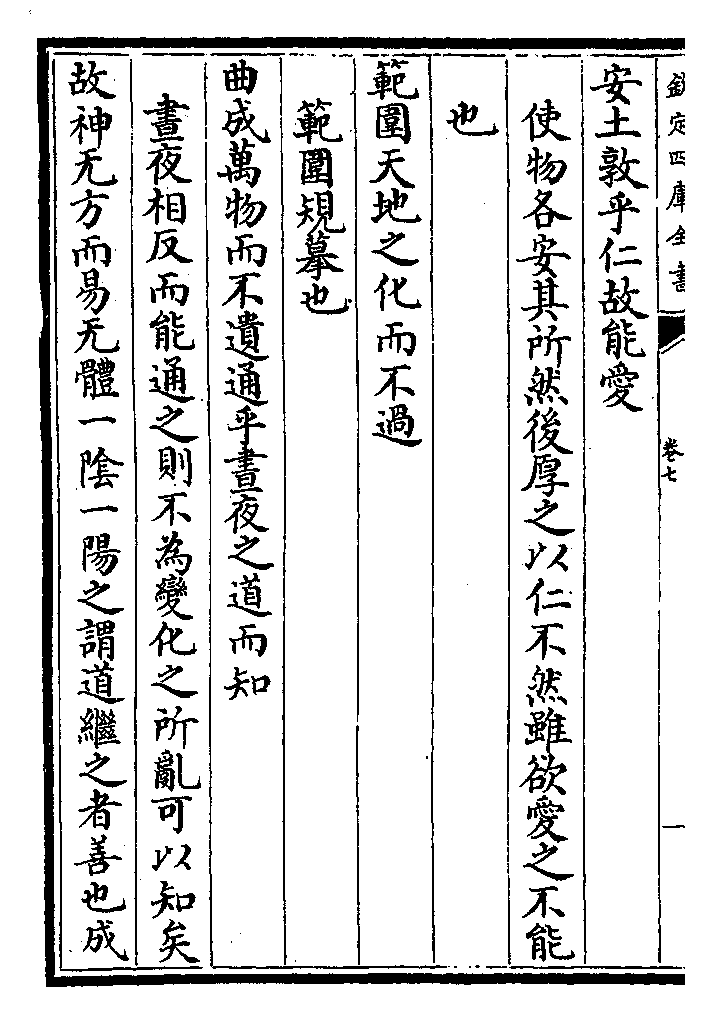 欽定四庫全書
卷七
一
安土敦乎仁故能愛
使物各安其所然後厚之以仁不然雖欲愛之不能
也
範圍天地之化而不過
範圍規摹也
曲成萬物而不遺通乎晝夜之道而知
晝夜相反而能通之則不為變化之所亂可以知矣
故神无方而易无體一陰一陽之謂道繼之者善也成